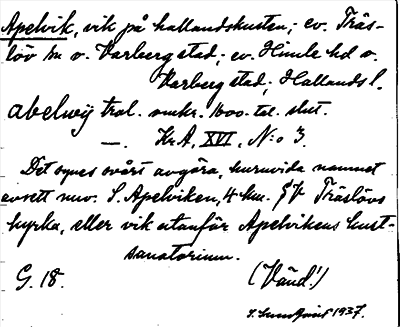 Apelvik, vik på hallandskusten; ev. Träs-
löv sn o. Varberg stad; ev. Himle hd o.
Varberg stad; Hallands l.
abelwij trol. omkr. 1600-tal. slut.
—. Kr.A. XVI. N:o 3.
Det synes svårt avgöra, huruvida namnet
avsett nuv. S. Apelviken, 4 km. SV Träslövs
kyrka, eller vik utanför Apelvikens kust-
sanatorium.
G. 18. (Vänd!)
S. 1937.